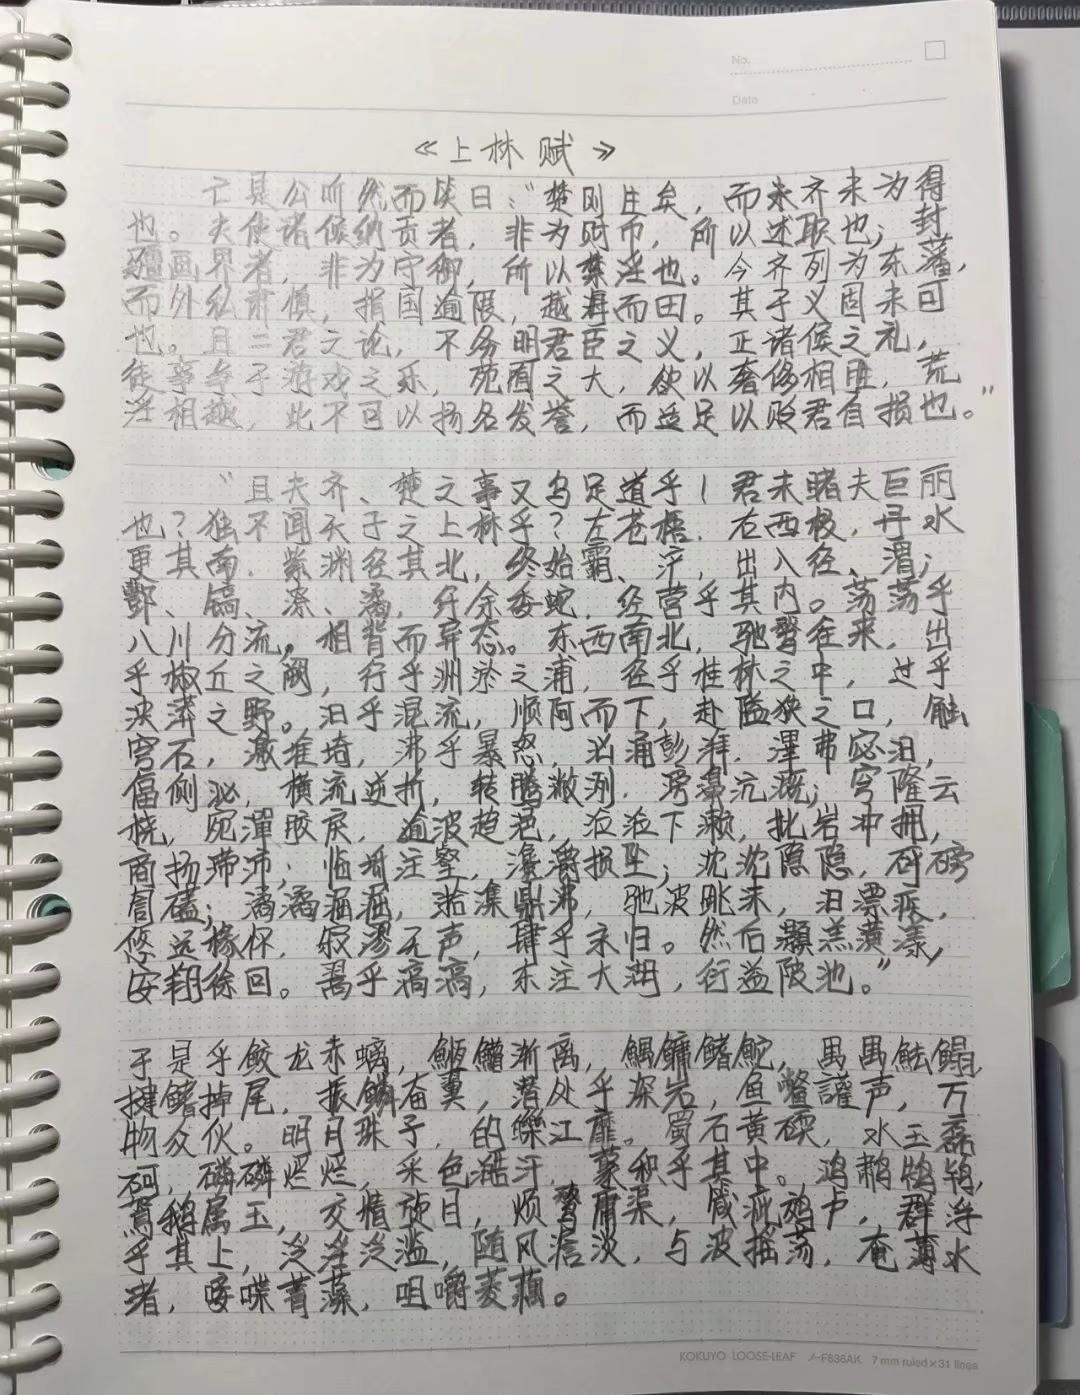 No.
Date
《上林赋》
亡是公听然而笑曰：“楚则失矣，而未齐未为得
也。夫使诸候纳贡者，非为财币，所以述职也；封
疆画界者，非为守御，所以禁淫也。今齐列为东藩，
而外私肃慎，捐国逾限，越海而田。其于义固未可
也。且二君之论，不务明君臣之义，正诸候之礼，
徒事争于游戏之乐，苑囿之大，欲以奢侈相胜，荒
淫相越，此不可以扬名发誉，而适足以贬君自损也。”
“且夫齐、楚之事又乌足道乎！君未睹夫巨丽
也？独不闻天子之上林乎？左苍梧，右西极，丹水
更其南，紫渊径其北，终始霸、浐，出入径、渭；
酆、镐、潦、潏，纡余委蛇，经营乎其内。荡荡乎
八川分流，相背而异态。东西南北，驰骛往来，出
乎椒丘之阙，行乎洲淤之浦，径乎桂林之中，过乎
泱漭之野。汩乎混流，顺阿而下，赴隘狭之口，触
穹石，激堆埼，沸乎暴怒，汹涌彭湃，滭弗宓汩，
偪侧泌，横流逆折，转腾潎洌，滂濞沆溉；穹隆云
桡，宛潬胶戾，逾波趋浥，涖涖下濑，批岩冲拥，
奔扬滞沛；临坻注壑，瀺灂损坠；沈沈隐隐，砰磅
訇礚；潏潏淈淈，湁潗鼎沸，驰波跳沫，汩漂疾，
悠远怀，寂漻无声，肆乎永归。然后灏羔潢漾，
安翔徐回。翯乎滈滈，东注大湖，衍益陂池。”
于是乎鲛龙赤螭，䱭䲛渐离，鰅鳙鳍鮀，禺禺魼鳎，
揵鳍掉尾，振鳞奋翼，潜处乎深岩，鱼鳖讙声，万
物众伙。明月珠子，的皪江靡。蜀石黄碝，水玉磊
砢，磷磷烂烂，采色澔汗，藂积乎其中。鸿鹔鹄鸨，
鴐鹅属玉，交精旋目，烦鹜庸渠，箴疵鵁卢，群浮
乎其上，泛淫泛滥，随风澹淡，与波摇荡，奄薄水
渚，唼喋菁藻，咀嚼菱藕。
KOKUYO LOOSE-LEAF ノ-F836AK 7 mm ruled×31 lines